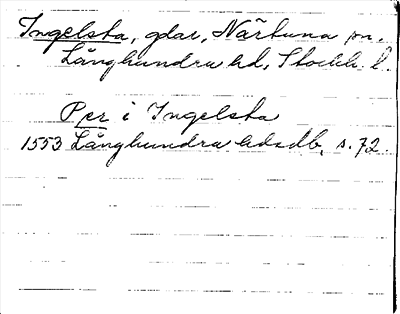 Ingelsta, gdar, Närtuna sn.
Långhundra hd, Stockh. l.
Per i Ingelsta
1553 Långhundra hdsdb, s. 72.